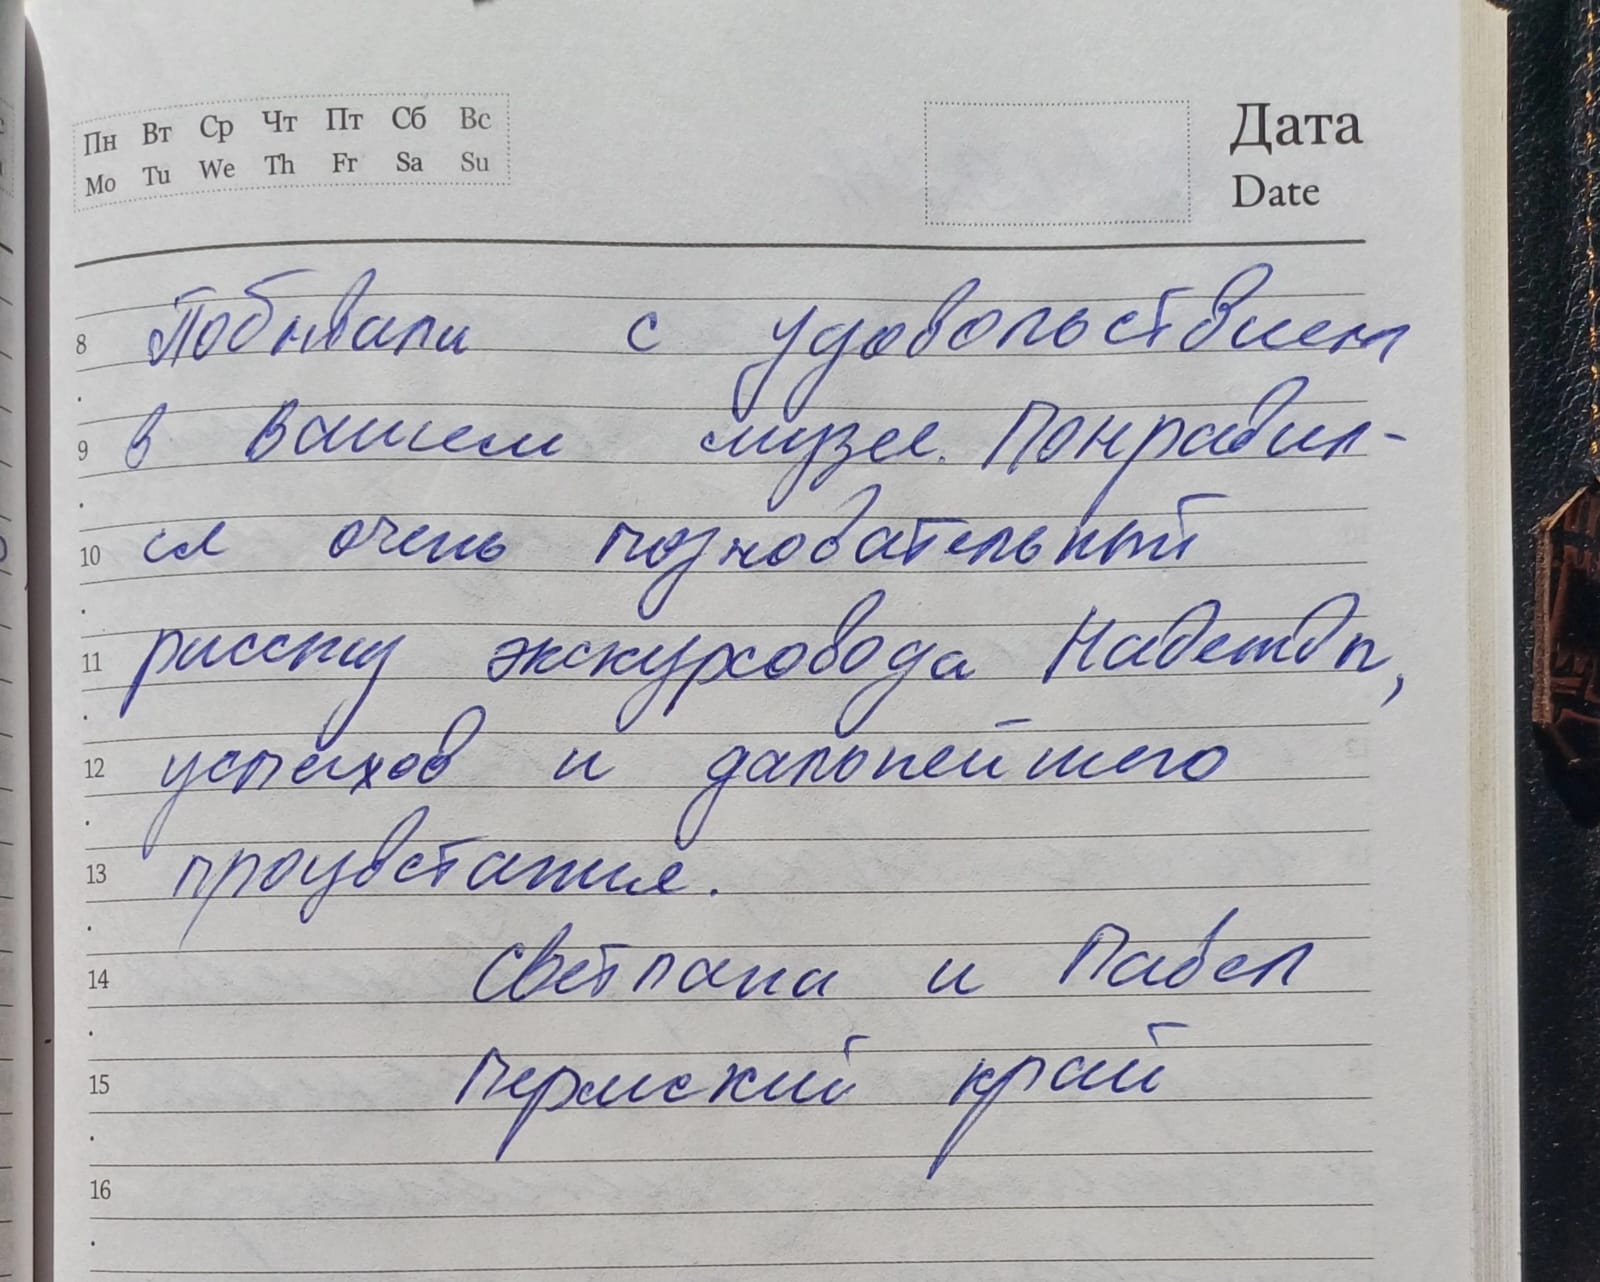 Пн Вт Ср Чт Пт Сб Вс
Mo Tu We Th Fr Sa Su
Дата
Date
8 Побывали с удовольствием
9 в вашем музее. Понравил-
10 ся очень позновательный
11 рассказ экскурсовода Надежды,
12 успехов и дальнейшего
13 процветания.
14 Светлана и Павел
15 Пермский край
16